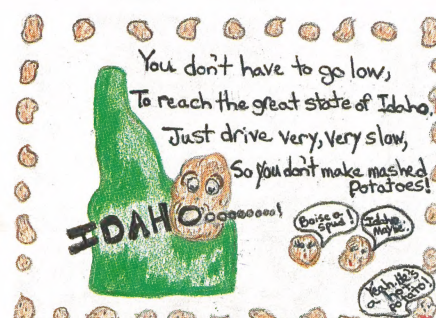 You don't have to go low,
To reach the great state of Idaho.
Just drive very, very slow,
So you don't make mashed
potatoes!
IDAHOooooooooo!
Boise o-
spud!
Idaho,
Maybe.
Yeah, He's
a hot
potato!